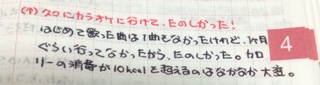 (9) タロにカラオケに行けて、たのしかった!
はじめて歌った曲は1曲もなかったけれど、1ヶ月
ぐらい行ってなかったから、たのしかった。カロ
リーの消費が10kcalを超えるのはなかなか大変。
4